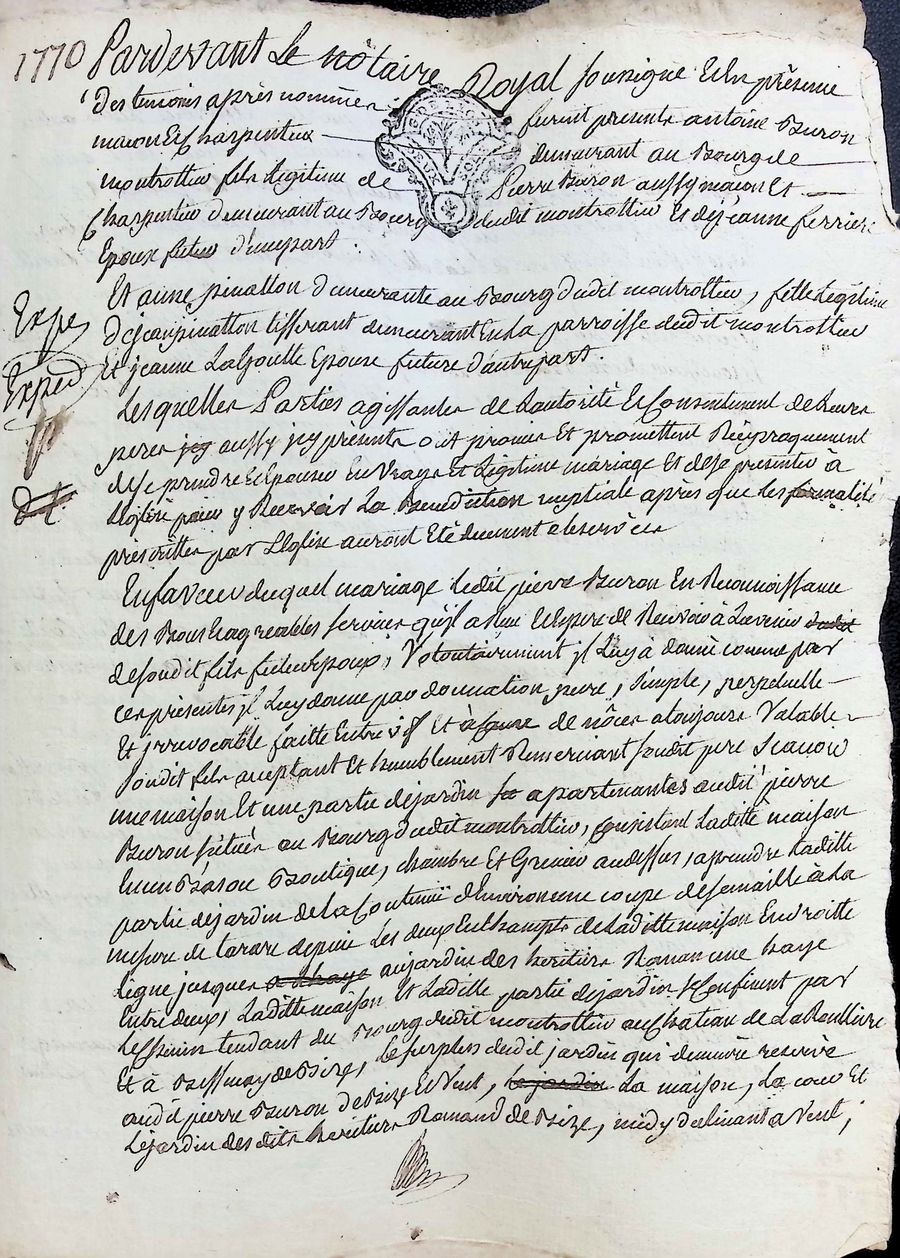 1770 Pardevant Le nôtaire Royal soussigné Et En présence
des temoins après nommés furent presents antoine Buron
macon Et Charpentier demeurant au Bourg de
montrottier fils Légitime de Pierre Buron aussy macon Et
Charpentier demeurant au Bourg dudit montrottier Et de jeanne ferriere
Epoux futur d'unepart .
Et anne pinatton demeurante au Bourg dudit montrottier, fille Légitime
Expe
de jean pinatton tisserant demeurant En La parroisse dudit montrottier
Et jeanne Lagoutte Epouse future d'autrepart .
Exped
Lesquelles Parties agissantes de Lautorité Et Consentement de Leurs
peres jcy aussy jcy présents ont promis Et promettent Réciproquement
de se prendre Et Epouser En vraye Et Légitime mariage Et de se presenter à
LEglise pour y Recevoir La Benediction nuptiale après que les formalités
prescrittes par LEglise auront Eté duement observées
En faveur duquel mariage Ledit pierre Buron En Reconnoissance
des Bons Et agreables services qu'jl a Reçu Et Espere de Recevoir à Lavenir dudit
de soudit fils futur Epoux, Volontairement jl Luy à donné comme par
ces présentes jl Luy donne par donnation pure, simple, perpetuelle
Et jrrevocable faitte Entre vifs Et à cause de nôces atoujours Valable
soudit fils aceptant Et humblement Remerciant soudit pere Scavoir
une maison Et une partie de jardin apartenantes audit pierre
Buron situées au Bourg dudit montrottier, consistant Laditte maison
En un Bas ou Boutique, chambre Et Grenier au dessus, aprendre Laditte
partie de jardin de La Contenüe d'Environ une coupe de semaille à La
mesure de tarare depuis Les deux de Laditte maison En droitte
Ligne jusques a La haye aujardin des heritiers Roman une haye
Entre deux, Laditte maison Et Laditte partie de jardin se Confinent par
Le chemin tendant du Bourg dudit montrottier au Chateau de La Roulliere
Et à de Bize, Le surplus dudit jardin qui demeure reservé
audit pierre Buron de Bize Et Vent, le jardin La maison, La cour Et
Le jardin desdits heritiers Romand de Bize, midy declinant a Vent ;